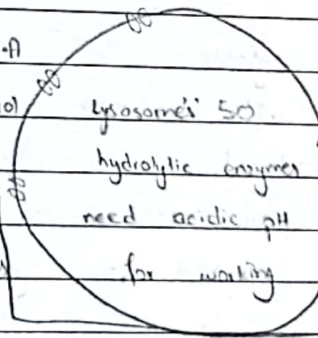 .A
Lysosome's' 50
hydrolytic enzymes
need acidic pH
for working